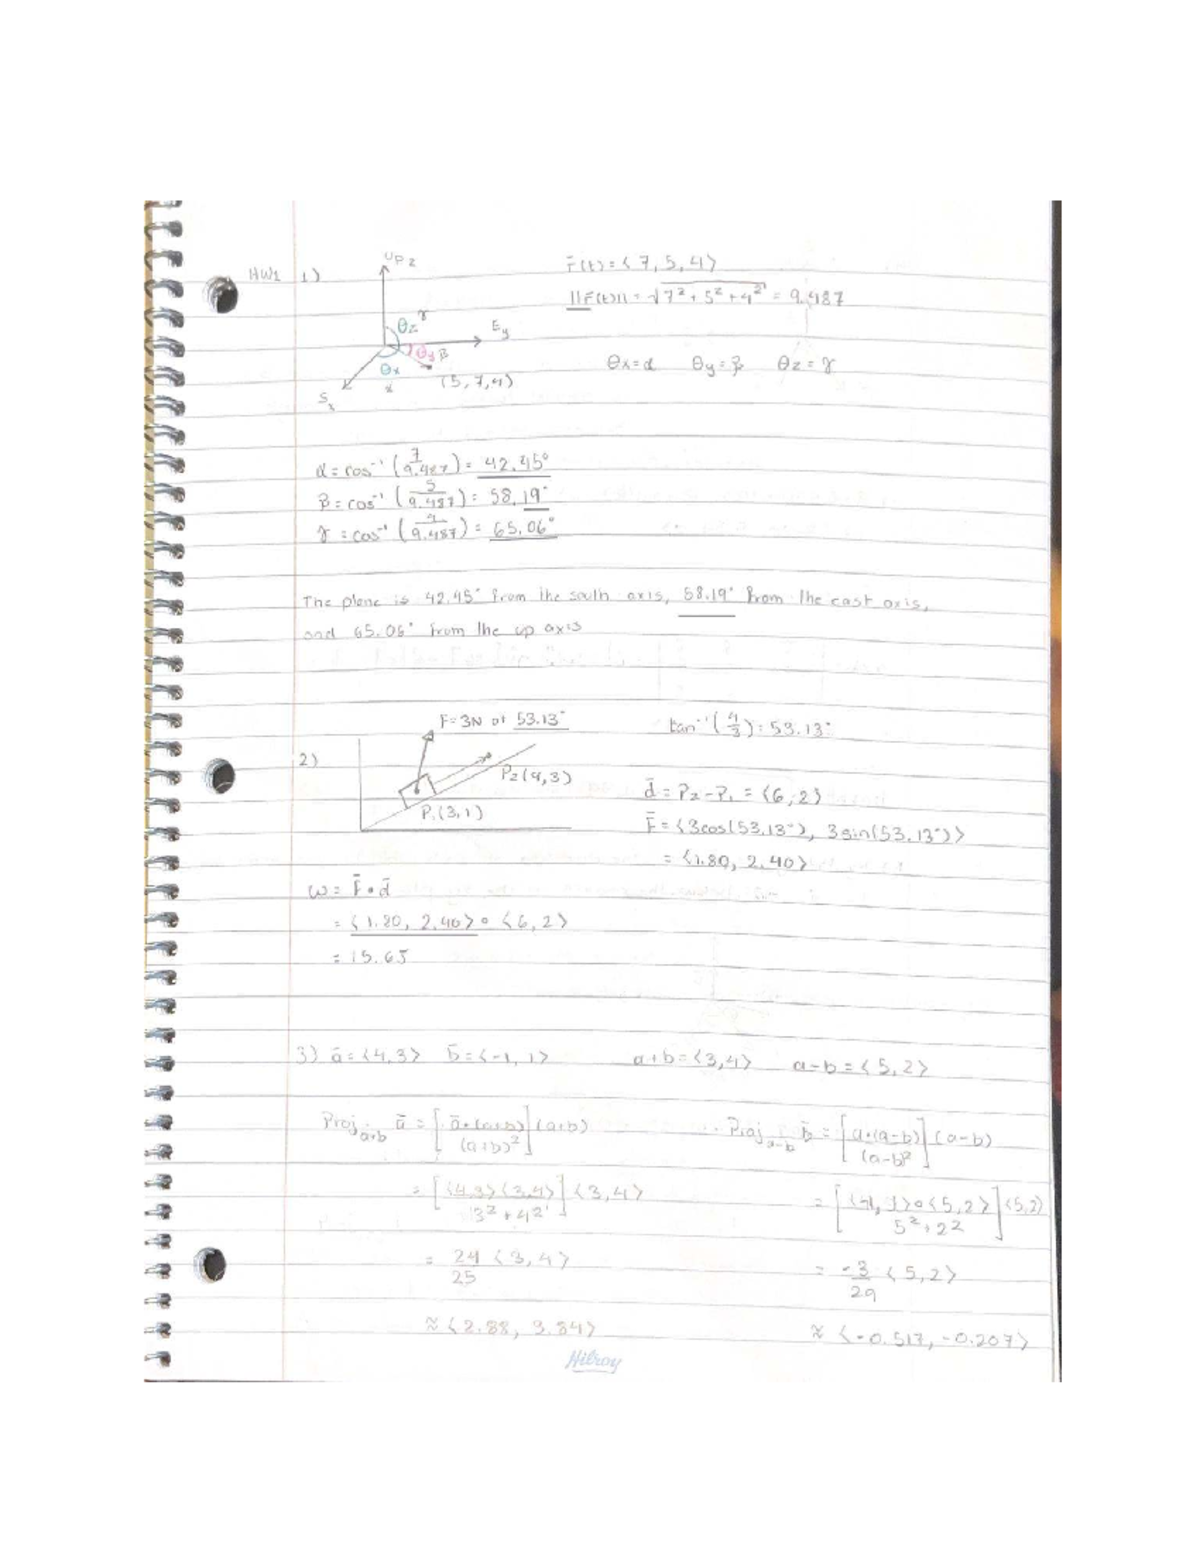 HW1 1)
UP z
r̄(t) = ⟨7, 5, 4⟩
||r̄(t)|| = √7² + 5² + 4² = 9.487
θz γ
E y
θy β
θx
α
(5, 7, 4)
S x
θx = α θy = β θz = γ
α = cos⁻¹ (7/9.487) = 42.45°
β = cos⁻¹ (5/9.487) = 58.19°
γ = cos⁻¹ (4/9.487) = 65.06°
The plane is 42.45° from the south axis, 58.19° from the east axis,
and 65.06° from the up axis
2)
F = 3N at 53.13°
P₂(9,3)
P₁(3,1)
tan⁻¹(4/3) = 53.13°
d̄ = P₂ - P₁ = ⟨6, 2⟩
F̄ = ⟨3cos(53.13°), 3sin(53.13°)⟩
= ⟨1.80, 2.40⟩
ω = F̄ • d̄
= ⟨1.80, 2.40⟩ • ⟨6, 2⟩
= 15.65
3) ā = ⟨4, 3⟩ b̄ = ⟨-1, 1⟩ a+b = ⟨3, 4⟩ a-b = ⟨5, 2⟩
Proj a+b ā = [ā•(a+b)/(a+b)²](a+b)
= [⟨4,3⟩⟨3,4⟩/3²+4²]⟨3,4⟩
= 24/25 ⟨3, 4⟩
≈ ⟨2.88, 3.84⟩
Proj a-b b̄ = [a•(a-b)/(a-b)²](a-b)
= [⟨-1, 1⟩•⟨5, 2⟩/5²+2²]⟨5,2⟩
= -3/29 ⟨5, 2⟩
≈ ⟨-0.517, -0.207⟩
Hilroy